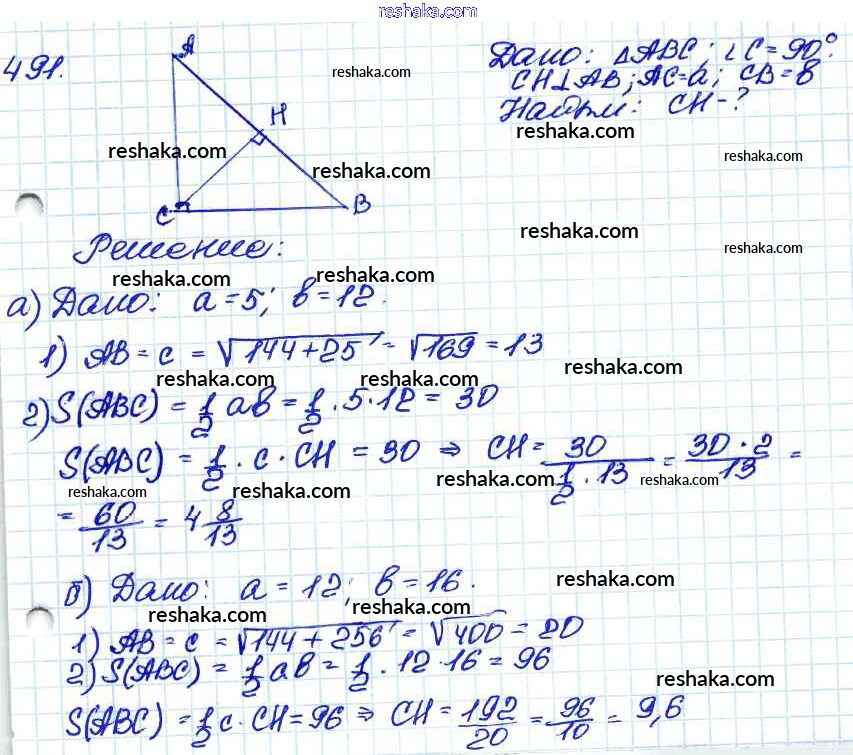 reshaka.com
491.
A
Дано: △ABC; ∠C=90°.
reshaka.com
CH⊥AB; AC=a; CB=в
Найти: CH-?
H
reshaka.com
reshaka.com
reshaka.com
reshaka.com
C
B
reshaka.com
Решение:
reshaka.com
reshaka.com
reshaka.com
а) Дано: a=5; в=12.
1) AB = c = √144+25 = √169 = 13
reshaka.com
reshaka.com
reshaka.com
2) S(ABC) = 1/2 aв = 1/2 · 5 · 12 = 30
reshaka.com
S(ABC) = 1/2 · c · CH = 30 ⇒ CH = 30/(1/2 · 13) = 30·2/13 =
reshaka.com
reshaka.com
reshaka.com
reshaka.com
= 60/13 = 4 8/13
б) Дано: a = 12; в = 16.
reshaka.com
reshaka.com
reshaka.com
1) AB = c = √144 + 256 = √400 = 20
2) S(ABC) = 1/2 aв = 1/2 · 12 · 16 = 96
reshaka.com
reshaka.com
reshaka.com
S(ABC) = 1/2 c · CH = 96 ⇒ CH = 192/20 = 96/10 = 9,6